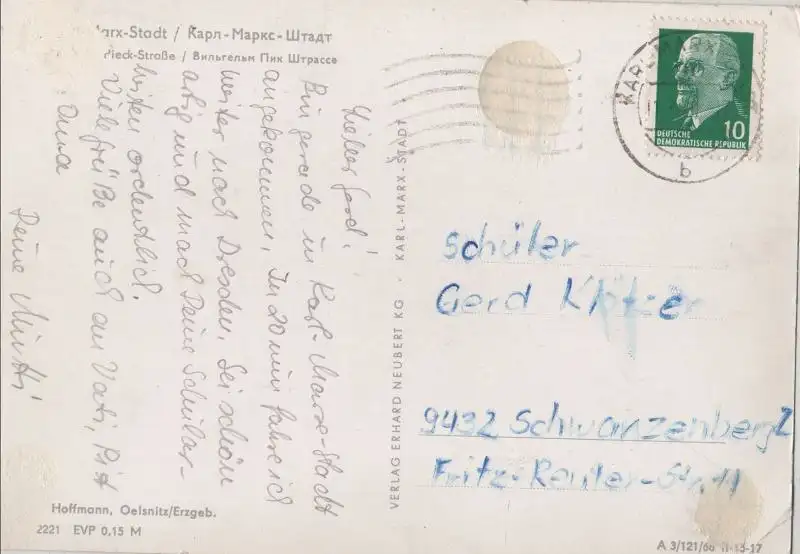 arx-Stadt / Карл-Маркс-Штадт
ieck-Straße / Вильгельм Пик Штрассе
Lieber Gerd!
Bin gerade in Karl-Marx-Stadt
angekommen. In 20 min fahre ich
weiter nach Dresden. Sei schön
artig und mach Deine Schular-
beiten ordentlich.
Viele Grüße auch an Vati,
Oma
Deine Mutti
Hoffmann, Oelsnitz/Erzgeb.
2221 EVP 0,15 M
VERLAG ERHARD NEUBERT KG · KARL-MARX-STADT
KARL-MARX
b
10
DEUTSCHE
DEMOKRATISCHE REPUBLIK
Schüler
Gerd
9432 Schwarzenberg 2
Fritz-Reuter-Str. 11
A 3/121/66 II-13-17